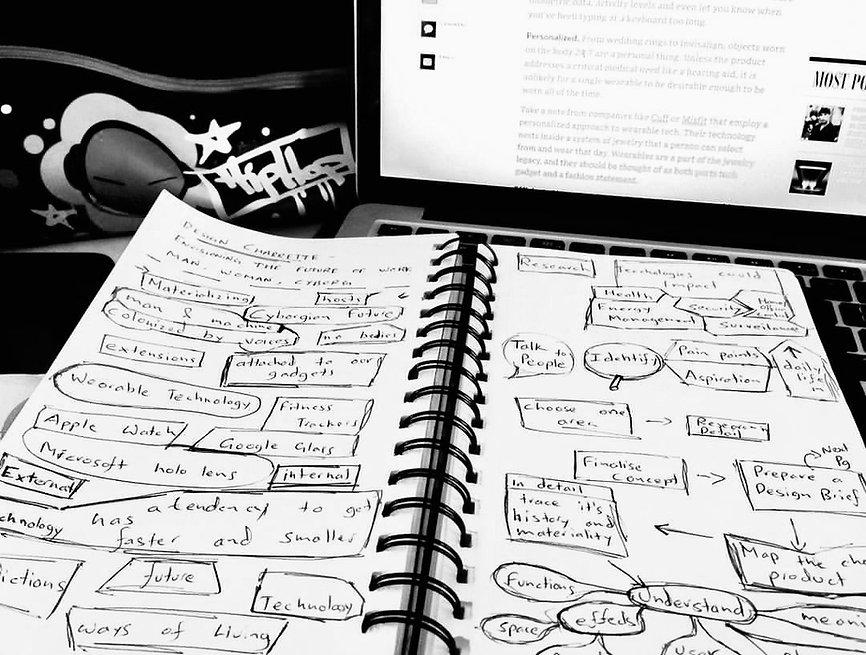 you've been typing at a keyboard too long.
Personalized. From wedding rings to Invisalign, objects worn
on the body 24/7 are a personal thing. Unless the product
addresses a critical medical need like a hearing aid, it is
unlikely for a single wearable to be desirable enough to be
worn all of the time.
Take a note from companies like Cuff or Misfit that employ a
personalized approach to wearable tech. Their technology
nests inside a system of jewelry that a person can select
from and wear that day. Wearables are a part of the jewelry
legacy, and they should be thought of as both parts tech
gadget and a fashion statement.
MOST PO
HipHop
DESIGN CHARRETTE -
ENVISIONING THE FUTURE OF WORK
MAN, WOMAN, CYBORG
Materializing
hosts
man & machine
Cyborgian Future
Colonized by voices
no bodies
extensions
attached to our
gadgets
Wearable Technology
Fitness
Trackers
Apple Watch
Google Glass
Microsoft holo lens
internal
External
chnology has a tendency to get
faster and smaller
ictions
future
Technology
ways of Living
Research
Technologies could
Impact
Health
Energy
Management
Security
Home
Office
Surveillance
Talk to
People
Identify
Pain points
Aspiration
daily
life in
choose one
area
Research
Detail
Finalise
Concept
Next
Pg
Prepare a
Design Brief
In detail
trace it's
history and
materiality
Map the cho
product
Functions
Understand
Space
effects
meani
user